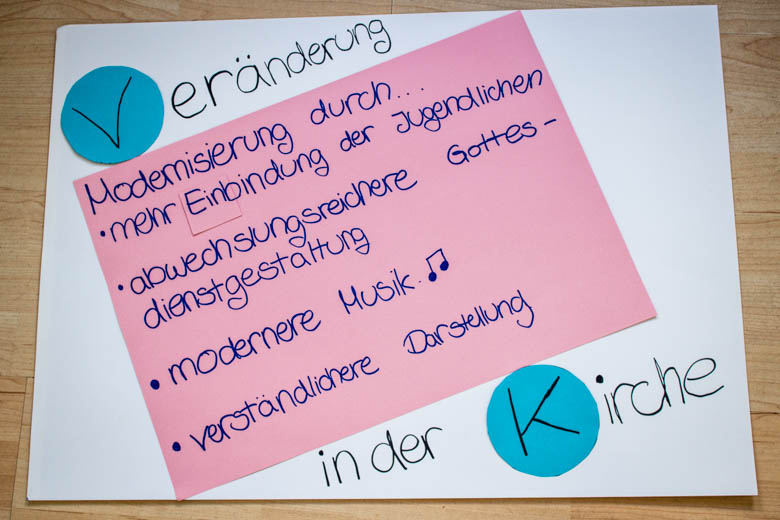 Veränderung
Modernisierung durch...
• mehr Einbindung der Jugendlichen
• abwechslungsreichere Gottes-
dienstgestaltung
• modernere Musik. ♫
• verständlichere Darstellung
in der Kirche